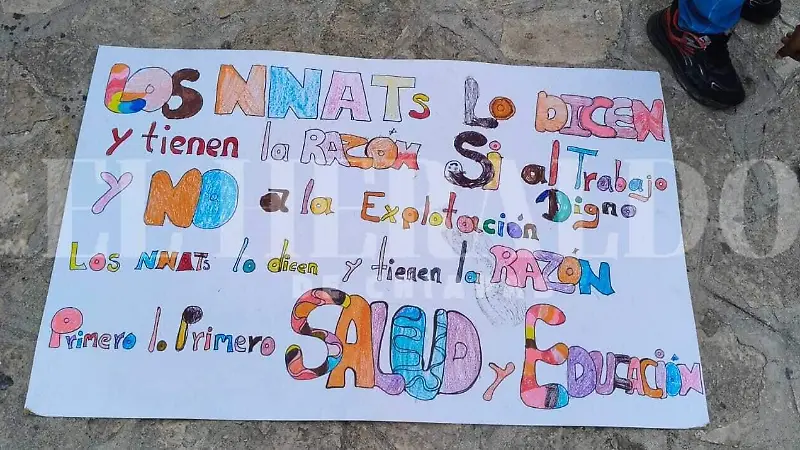 LOS NNATs Lo DICEN
y tienen la RAZÓN Si al Trabajo Digno
y NO a la Explotación
Los NNATs lo dicen y tienen la RAZÓN
Primero lo Primero SALUD y EDUCACIÓN
EL HERALDO
DE CHIAPAS